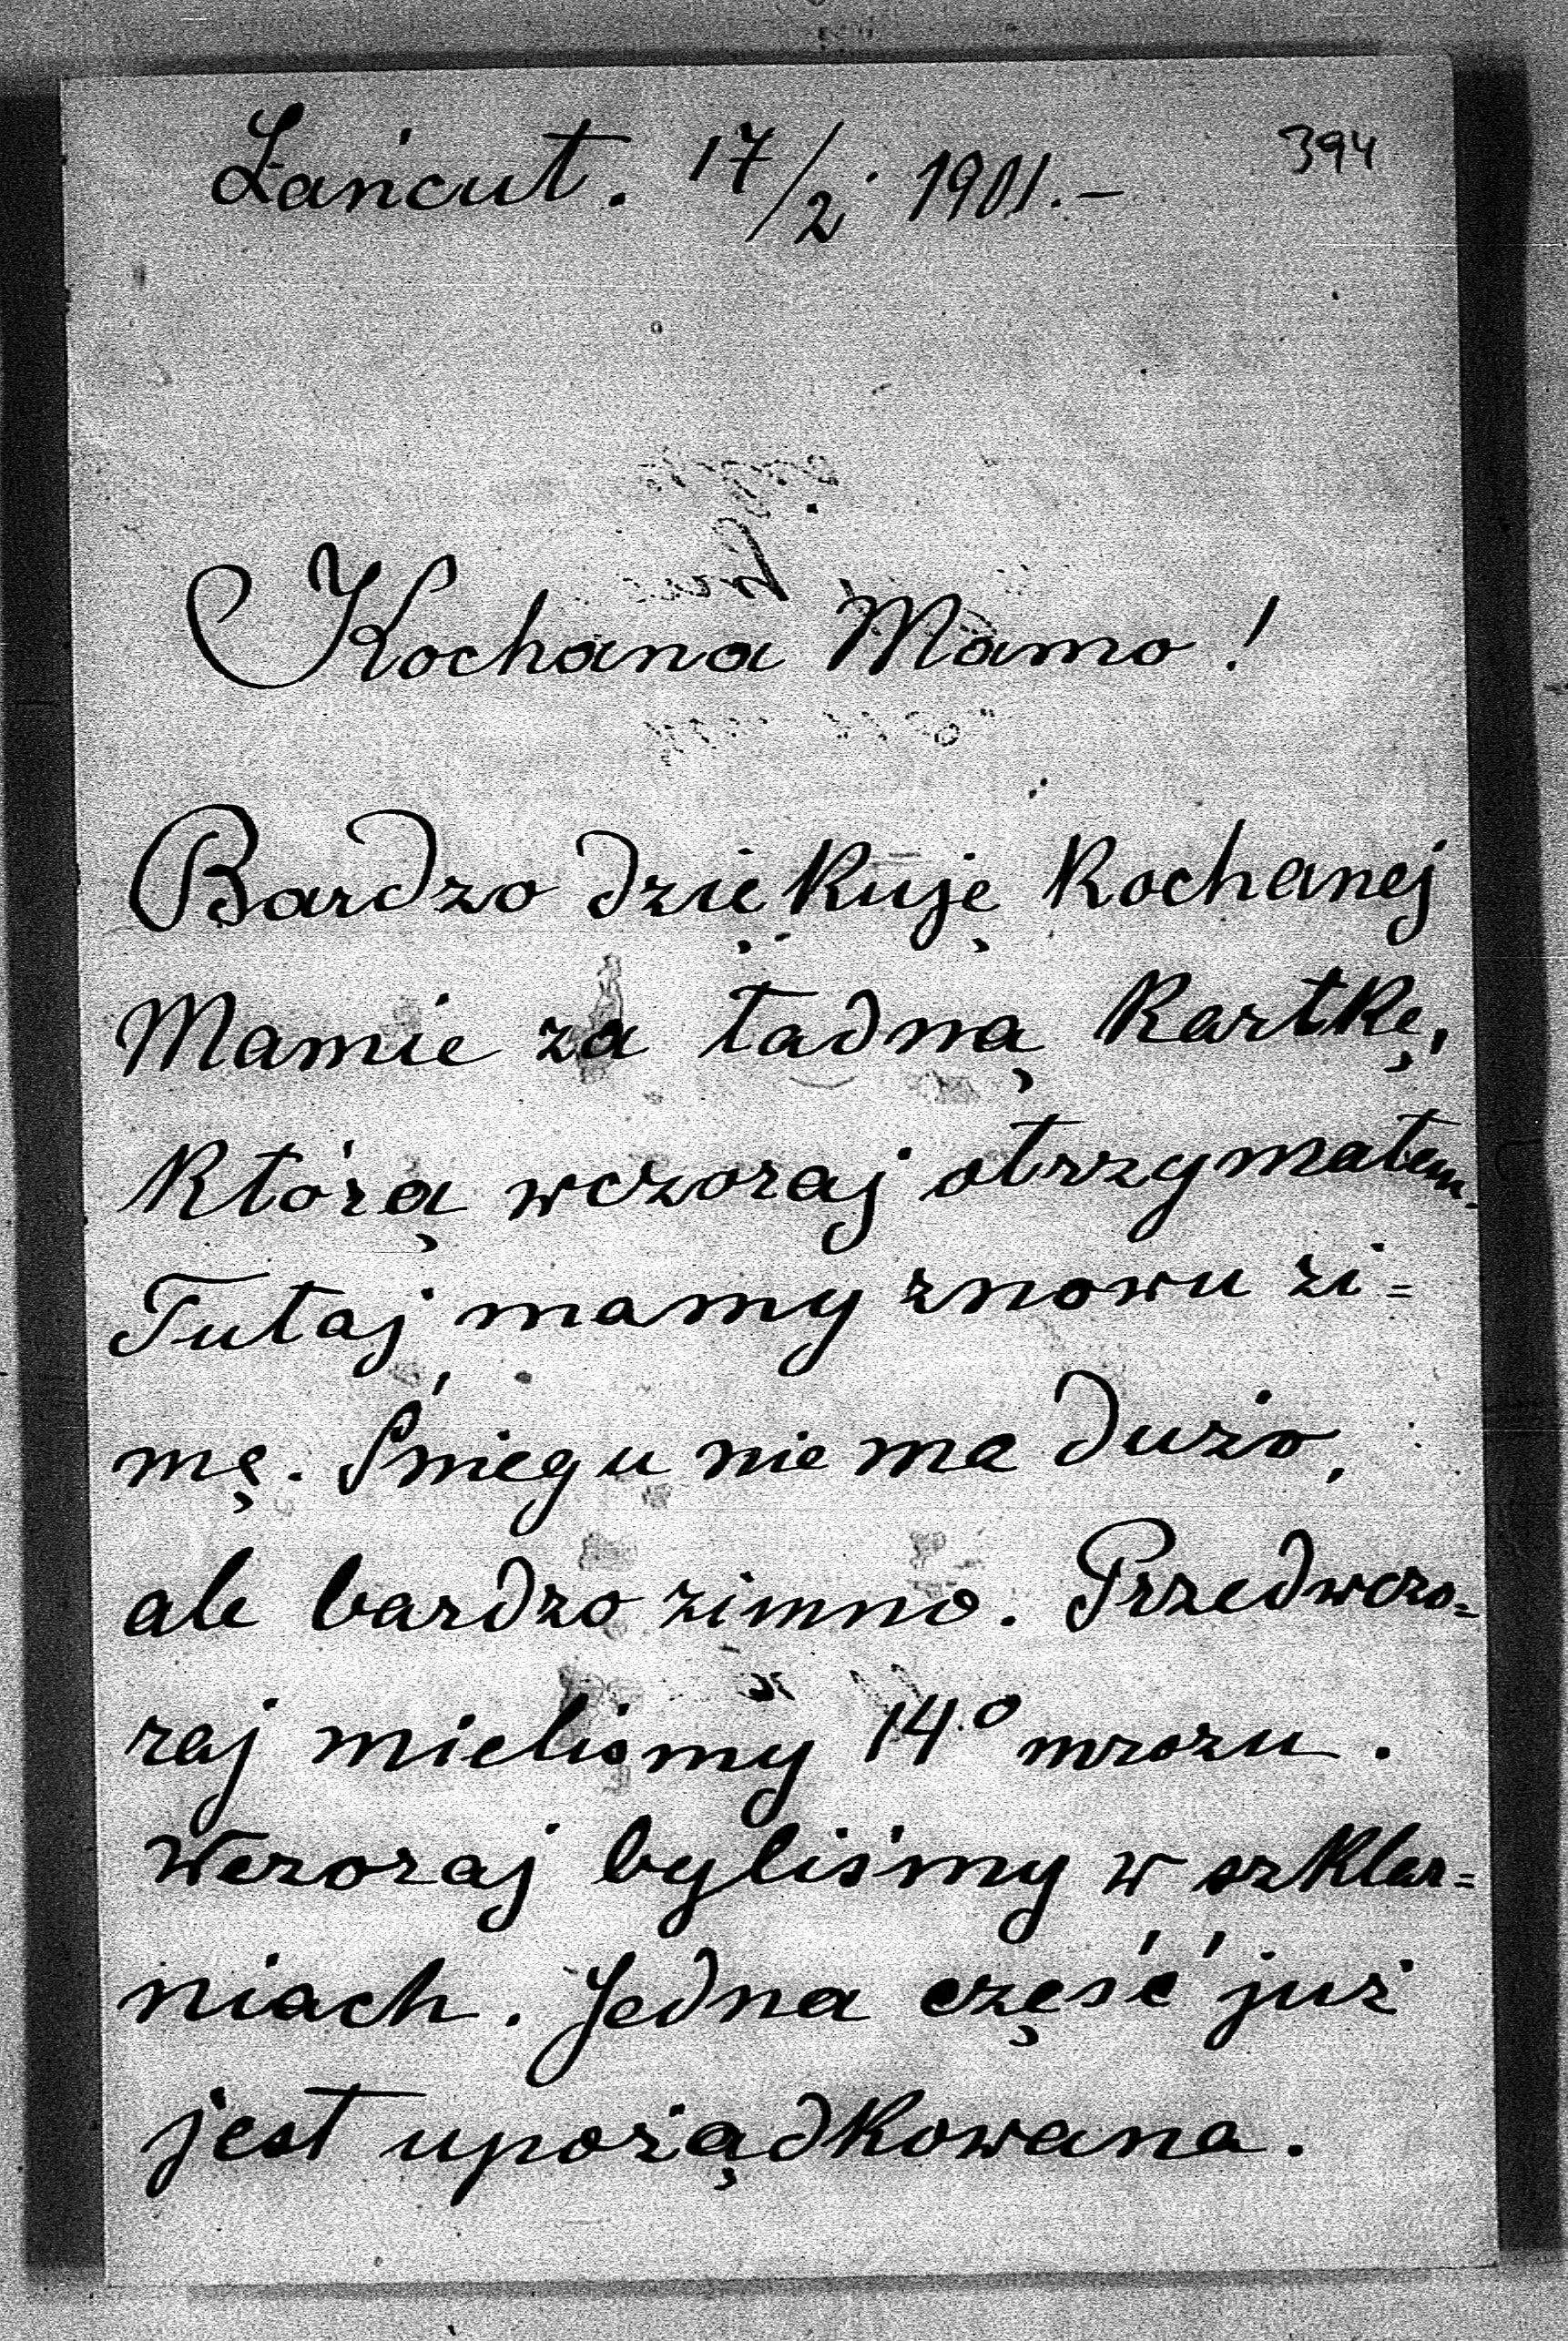 Łańcut. 17/2. 1901.-
394
Kochana Mamo!
Bardzo dziękuję Kochanej
Mamie za ładną Kartkę,
Którą wczoraj otrzymałem.
Tutaj mamy znowu zi=
mę. Śniegu nie ma dużo,
ale bardzo zimno. Przedwczo=
raj mieliśmy 14.° mrozu.
Wczoraj byliśmy w szklar=
niach. Jedna część już
jest upożądkowana.